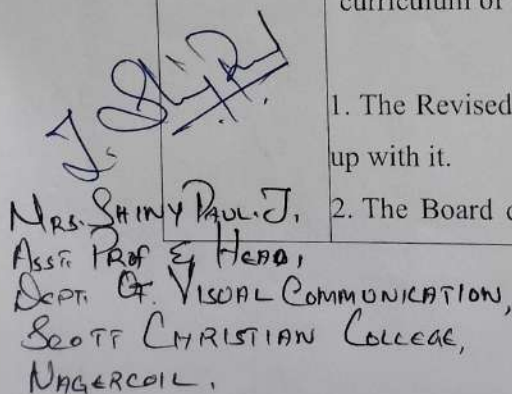 curriculum of
J. Shiny Paul
1. The Revised
up with it.
2. The Board
MRS. SHINY PAUL. J,
ASST. PROF & HEAD,
DEPT. OF. VISUAL COMMUNICATION,
SCOTT CHRISTIAN COLLEGE,
NAGERCOIL.